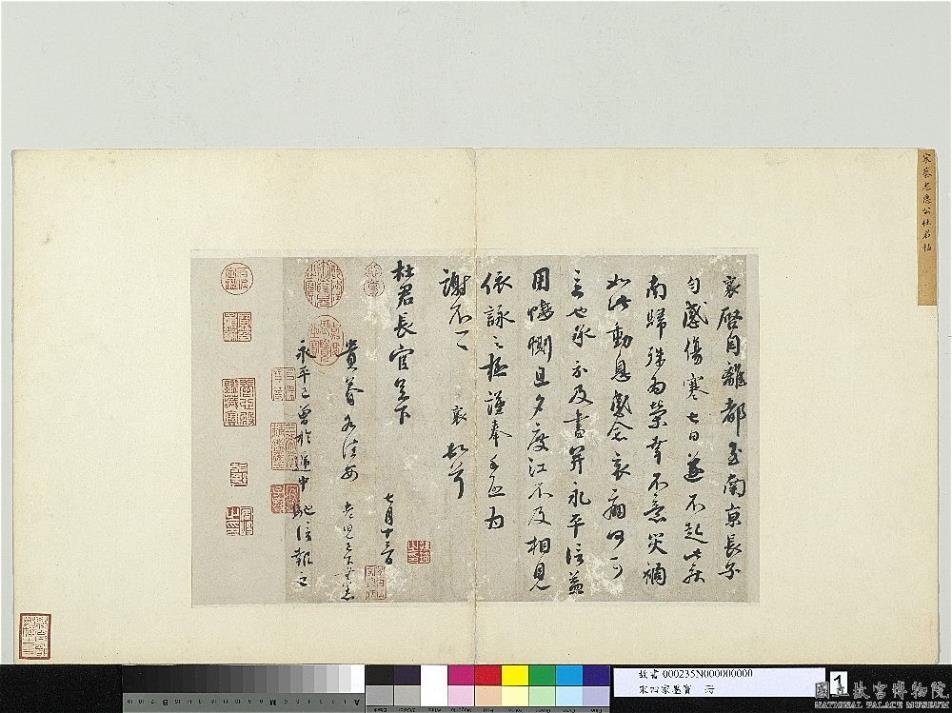 宋蔡忠惠公杜君帖
襄啓自離都至南京長子
勻感傷寒七日遂不起此疾
南歸殊為榮幸不意災禍
如此動息感念哀痛何可
言也承示及書并永平信益
用悽惻旦夕度江不及相見
依詠之極謹奉手啓為
謝不一一 襄 頓首
杜君長官足下
七月十三日
貴眷各佳安 老兒已下無恙
永平已曾於遞中馳信報之
故書 000235N000000000
宋四家墨寶 冊
1
國立故宮博物院
NATIONAL PALACE MUSEUM